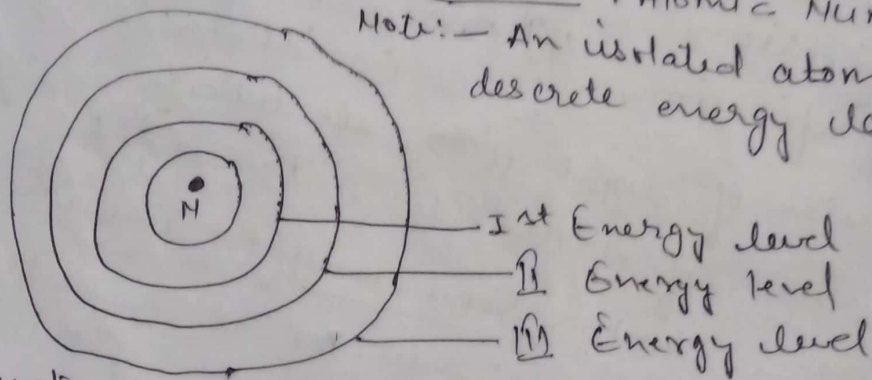 Atomic Nu
Note:- An isolated atom
descrete energy le
N
Ist Energy level
II Energy level
III Energy level